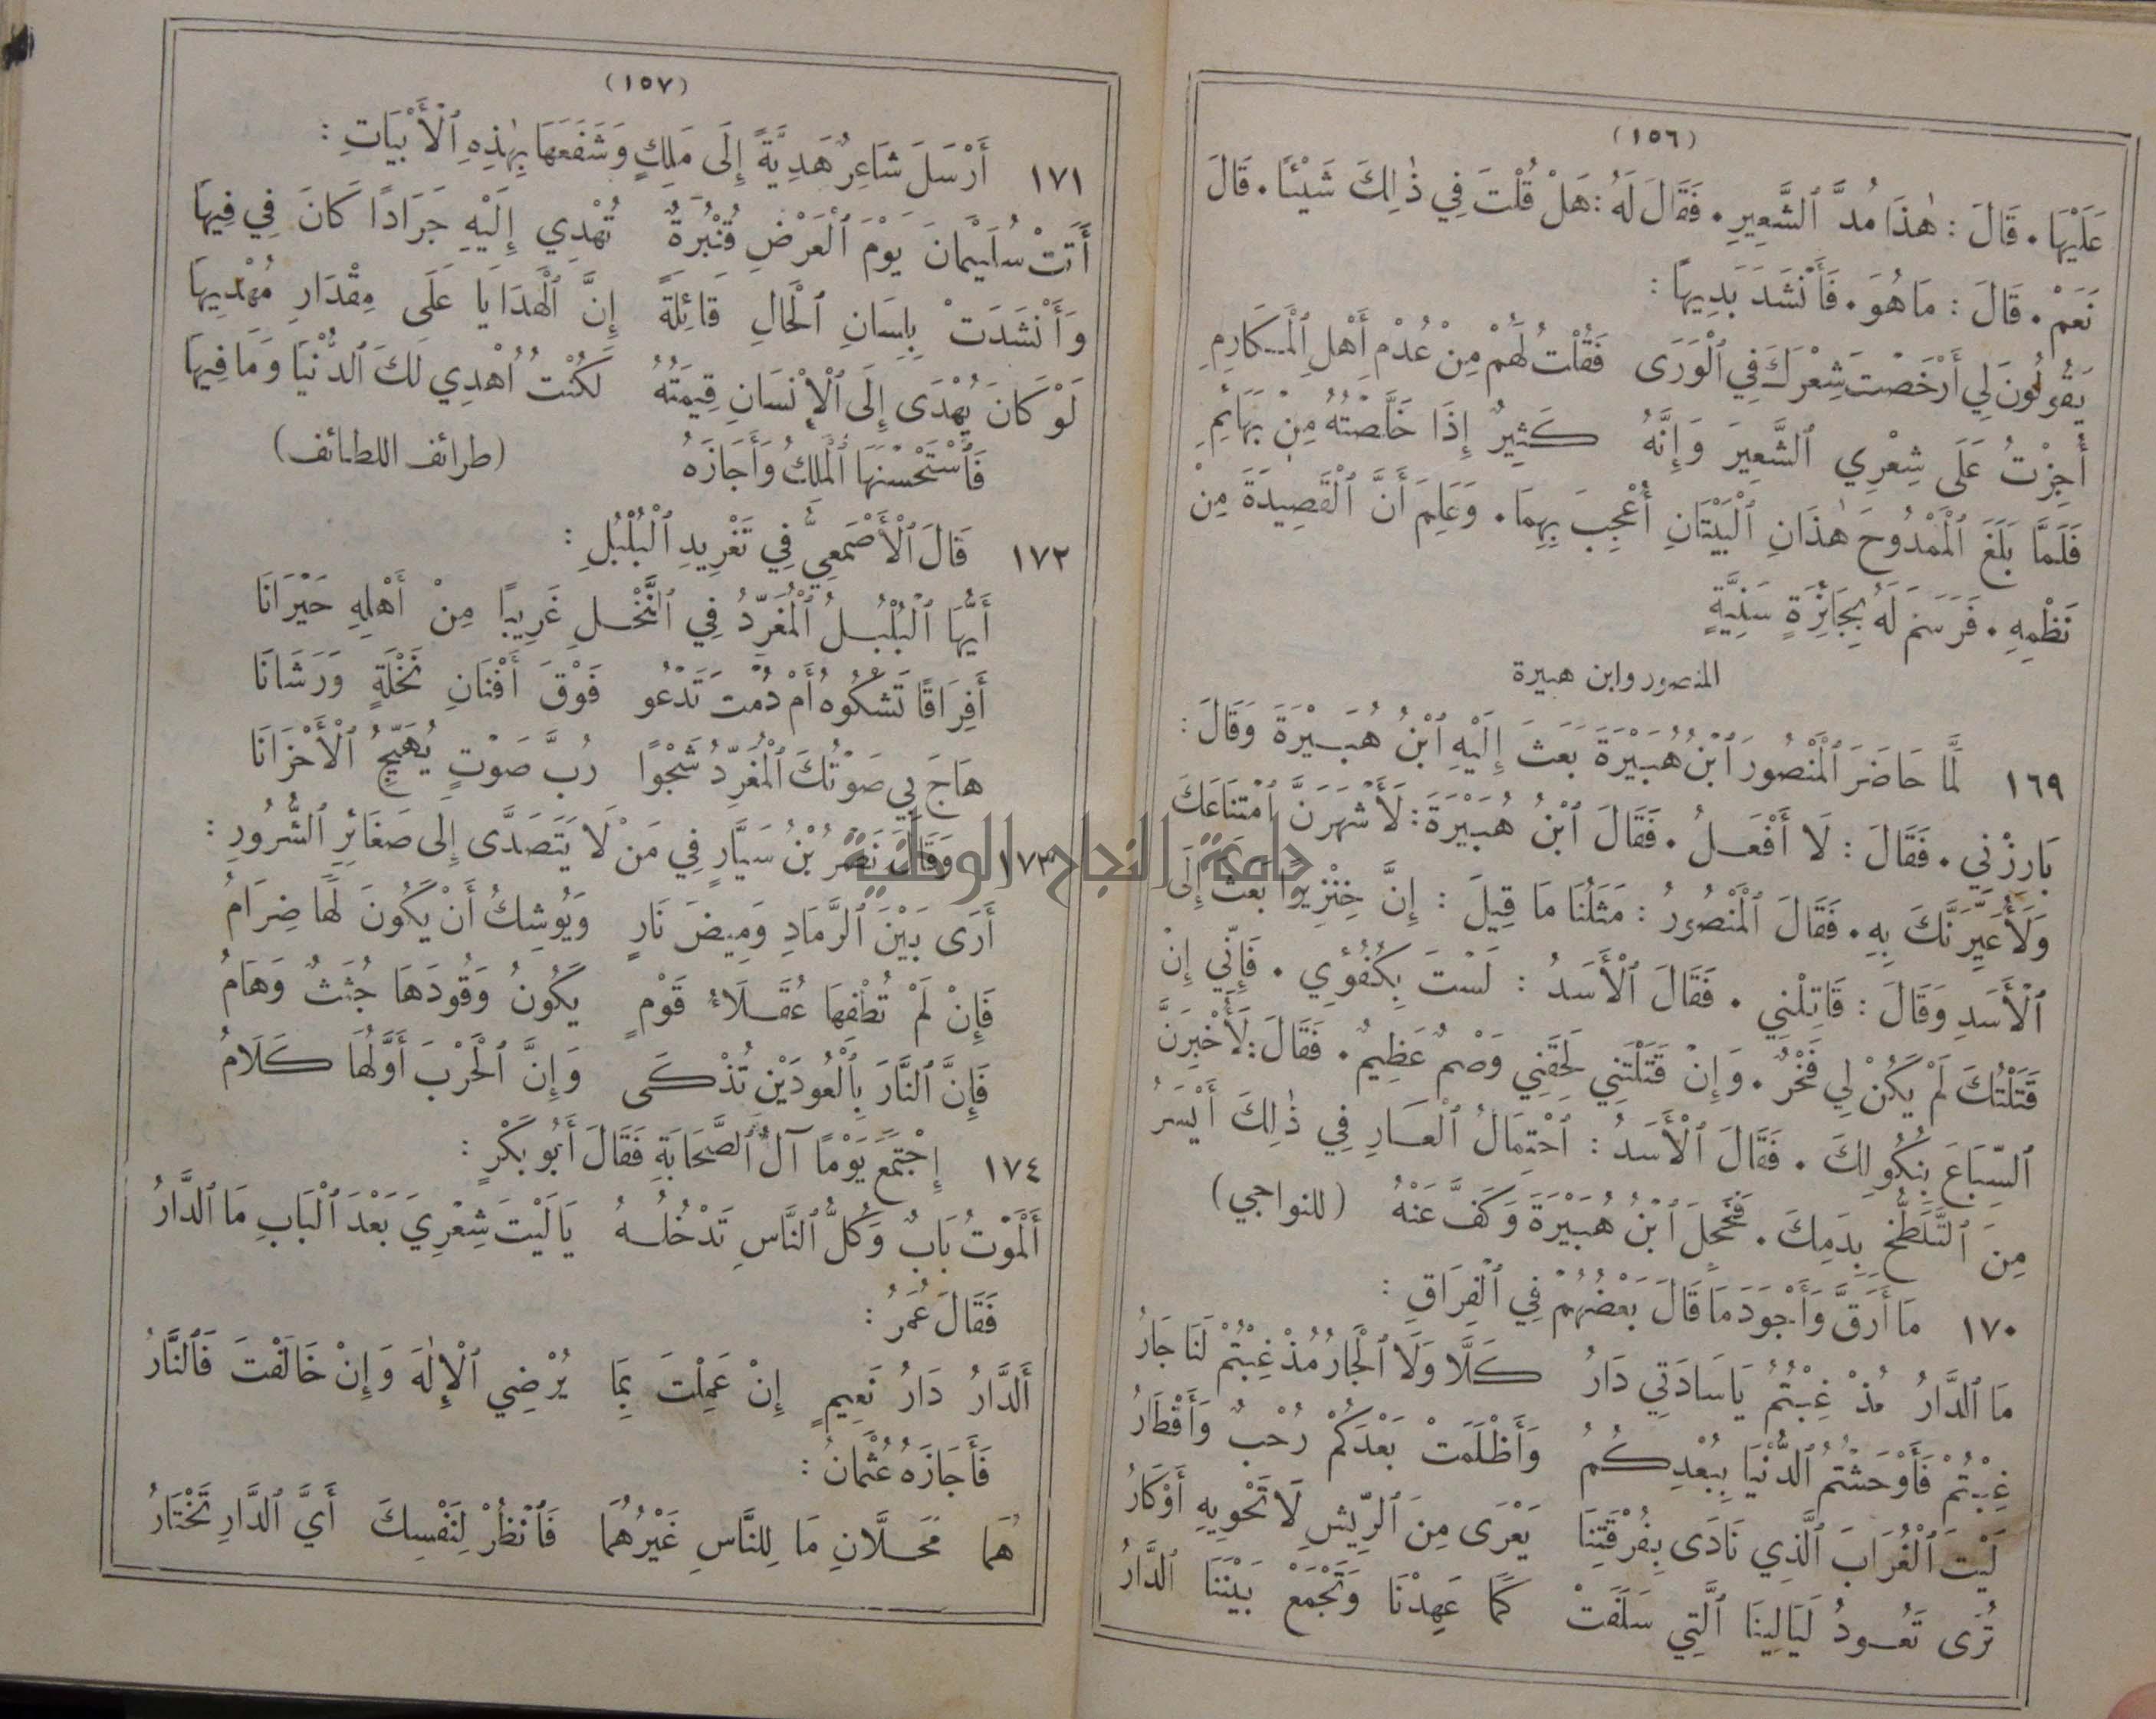 (١٥٦)
عَلَيْهَا . قَالَ : هٰذَا مُدُّ ٱلشَّعِيرِ . فَقَالَ لَهُ : هَلْ قُلْتَ فِي ذٰلِكَ شَيْئًا . قَالَ
نَعَمْ . قَالَ : مَا هُوَ . فَأَنْشَدَ بَدِيهًا :
يَقُولُونَ لِي أَرْخَصْتَ شِعْرَكَ فِي ٱلْوَرَى فَقُلْتُ لَهُمْ مِنْ عُدْمِ أَهْلِ ٱلْمَكَارِمِ
أُجِزْتُ عَلَى شِعْرِي ٱلشَّعِيرَ وَإِنَّهُ كَثِيرٌ إِذَا خَلَّصْتُهُ مِنْ بَهَائِمِ
فَلَمَّا بَلَغَ ٱلْمَمْدُوحَ هٰذَانِ ٱلْبَيْتَانِ أُعْجِبَ بِهِمَا . وَعَلِمَ أَنَّ ٱلْقَصِيدَةَ مِنْ
نَظْمِهِ . فَرَسَمَ لَهُ بِجَائِزَةٍ سَنِيَّةٍ
المنصور وابن هبيرة
١٦٩ لَمَّا حَاصَرَ ٱلْمَنْصُورُ ٱبْنَ هُبَيْرَةَ بَعَثَ إِلَيْهِ ٱبْنُ هُبَيْرَةَ وَقَالَ :
بَارِزْنِي . فَقَالَ : لَا أَفْعَلُ . فَقَالَ ٱبْنُ هُبَيْرَةَ : لَأُشْهِرَنَّ ٱمْتِنَاعَكَ
وَلَأُعَيِّرَنَّكَ بِهِ . فَقَالَ ٱلْمَنْصُورُ : مَثَلُنَا مَا قِيلَ : إِنَّ خِنْزِيرًا بَعَثَ إِلَى
ٱلْأَسَدِ وَقَالَ : قَاتِلْنِي . فَقَالَ ٱلْأَسَدُ : لَسْتَ بِكُفُؤِي . فَإِنِّي إِنْ
قَتَلْتُكَ لَمْ يَكُنْ لِي فَخْرٌ . وَإِنْ قَتَلْتَنِي لَحِقَنِي وَصْمٌ عَظِيمٌ . فَقَالَ : لَأُخْبِرَنَّ
ٱلسِّبَاعَ بِنُكُولِكَ . فَقَالَ ٱلْأَسَدُ : ٱحْتِمَالُ ٱلْعَارِ فِي ذٰلِكَ أَيْسَرُ
مِنَ ٱلتَّلَطُّخِ بِدَمِكَ . فَخَجِلَ ٱبْنُ هُبَيْرَةَ وَكَفَّ عَنْهُ (للنواجي)
١٧٠ مَا أَرَقَّ وَأَجْوَدَ مَا قَالَ بَعْضُهُمْ فِي ٱلْفِرَاقِ :
مَا ٱلدَّارُ مُذْ غِبْتُمُ يَا سَادَتِي دَارُ كَلَّا وَلَا ٱلْجَارُ مُذْ غِبْتُمْ لَنَا جَارُ
غِبْتُمْ فَأَوْحَشْتُمُ ٱلدُّنْيَا بِبُعْدِكُمُ وَأَظْلَمَتْ بَعْدَكُمْ رُحْبٌ وَأَقْطَارُ
لَيْتَ ٱلْغُرَابَ ٱلَّذِي نَادَى بِفُرْقَتِنَا يَعْرَى مِنَ ٱلرِّيشِ لَا تَحْوِيهِ أَوْكَارُ
تُرَى تَعُودُ لَيَالِينَا ٱلَّتِي سَلَفَتْ كَمَا عَهِدْنَا وَتَجْمَعْ بَيْنَنَا ٱلدَّارُ
(١٥٧)
١٧١ أَرْسَلَ شَاعِرٌ هَدِيَّةً إِلَى مَلِكٍ وَشَفَعَهَا بِهٰذِهِ ٱلْأَبْيَاتِ :
أَتَتْ سُلَيْمَانَ يَوْمَ ٱلْعَرْضِ قُنْبُرَةٌ تُهْدِي إِلَيْهِ جَرَادًا كَانَ فِي فِيهَا
وَأَنْشَدَتْ بِلِسَانِ ٱلْحَالِ قَائِلَةً إِنَّ ٱلْهَدَايَا عَلَى مِقْدَارِ مُهْدِيهَا
لَوْ كَانَ يُهْدَى إِلَى ٱلْإِنْسَانِ قِيمَتُهُ لَكُنْتُ أُهْدِي لَكَ ٱلدُّنْيَا وَمَا فِيهَا
فَٱسْتَحْسَنَهَا ٱلْمَلِكُ وَأَجَازَهُ (طرائف اللطائف)
١٧٢ قَالَ ٱلْأَصْمَعِيُّ فِي تَغْرِيدِ ٱلْبُلْبُلِ :
أَيُّهَا ٱلْبُلْبُلُ ٱلْمُغَرِّدُ فِي ٱلنَّخْلِ غَرِيبًا مِنْ أَهْلِهِ حَيْرَانَا
أَفِرَاقًا تَشْكُوهُ أَمْ دُمْتَ تَدْعُو فَوْقَ أَفْنَانِ نَخْلَةٍ وَرَشَانَا
هَاجَ لِي صَوْتُكَ ٱلْمُغَرِّدُ شَجْوًا رُبَّ صَوْتٍ يُهَيِّجُ ٱلْأَحْزَانَا
١٧٣ وَقَالَ نَصْرُ بْنُ سَيَّارٍ فِي مَنْ لَا يَتَصَدَّى إِلَى صَغَائِرِ ٱلشُّرُورِ :
أَرَى بَيْنَ ٱلرَّمَادِ وَمِيضَ نَارٍ وَيُوشِكُ أَنْ يَكُونَ لَهَا ضِرَامُ
فَإِنْ لَمْ تُطْفِهَا عُقَلَاءُ قَوْمٍ يَكُونُ وَقُودَهَا جُثَثٌ وَهَامُ
فَإِنَّ ٱلنَّارَ بِٱلْعُودَيْنِ تُذْكَى وَإِنَّ ٱلْحَرْبَ أَوَّلُهَا كَلَامُ
١٧٤ إِجْتَمَعَ يَوْمًا آلُ ٱلصَّحَابَةِ فَقَالَ أَبُو بَكْرٍ :
أَلْمَوْتُ بَابٌ وَكُلُّ ٱلنَّاسِ تَدْخُلُهُ يَا لَيْتَ شِعْرِيَ بَعْدَ ٱلْبَابِ مَا ٱلدَّارُ
فَقَالَ عُمَرُ :
أَلدَّارُ دَارُ نَعِيمٍ إِنْ عَمِلْتَ بِمَا يُرْضِي ٱلْإِلٰهَ وَإِنْ خَالَفْتَ فَٱلنَّارُ
فَأَجَازَهُ عُثْمَانُ :
هُمَا مَحَلَّانِ مَا لِلنَّاسِ غَيْرُهُمَا فَٱنْظُرْ لِنَفْسِكَ أَيَّ ٱلدَّارِ تَخْتَارُ
جامعة النجاح الوطنية